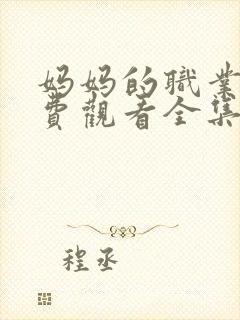 妈妈的職業
費觀看全集
程丞